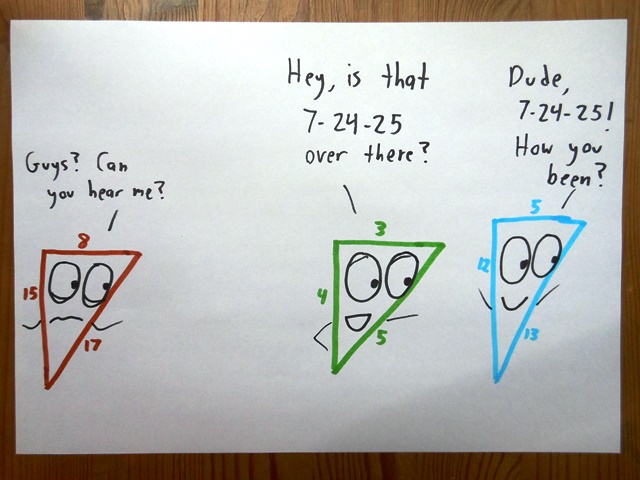 Guys? Can
you hear me?
8
15
17
Hey, is that
7-24-25
over there?
3
4
5
Dude,
7-24-25!
How you
been?
5
12
13